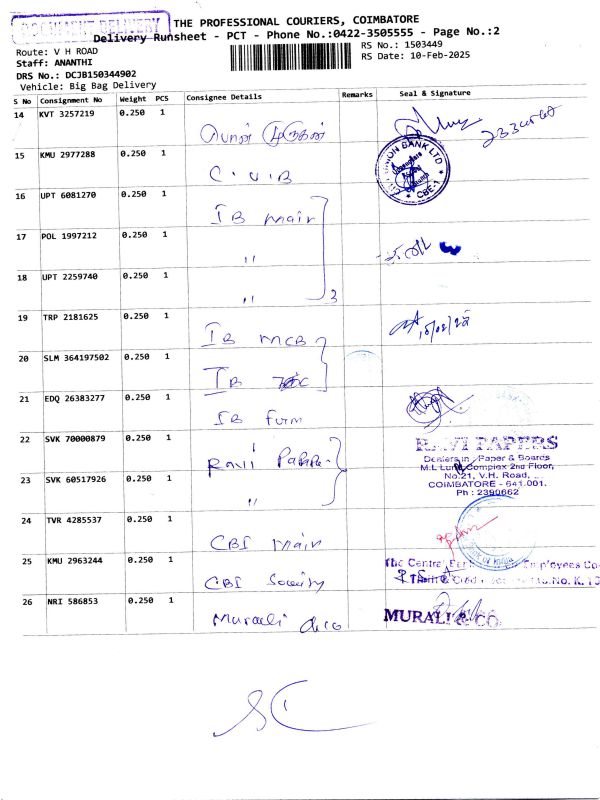 DOCUMENT DELIVERY
THE PROFESSIONAL COURIERS, COIMBATORE
Delivery Runsheet - PCT - Phone No.:0422-3505555 - Page No.:2
Route: V H ROAD
RS No.: 1503449
Staff: ANANTHI
RS Date: 10-Feb-2025
DRS No.: DCJB150344902
Vehicle: Big Bag Delivery
S No Consignment No Weight PCS Consignee Details Remarks Seal & Signature
14 KVT 3257219 0.250 1
15 KMU 2977288 0.250 1 C.U.B
UNION BANK LTD
CBE-1
16 UPT 6081270 0.250 1 IB main
17 POL 1997212 0.250 1 "
18 UPT 2259740 0.250 1 " 3
19 TRP 2181625 0.250 1 IB MCB
20 SLM 364197502 0.250 1 IB
21 EDQ 26383277 0.250 1 IB
22 SVK 70000879 0.250 1 Ravi
RAVI PAPERS
Dealers in : Paper & Boards
M.L Complex 2nd Floor,
No.21, V.H. Road,
COIMBATORE - 641.001.
Ph : 2390662
23 SVK 60517926 0.250 1 "
24 TVR 4285537 0.250 1 CBI main
25 KMU 2963244 0.250 1 CBI Society
The Central Employees Co
26 NRI 586853 0.250 1 Murali
MURALI & CO.